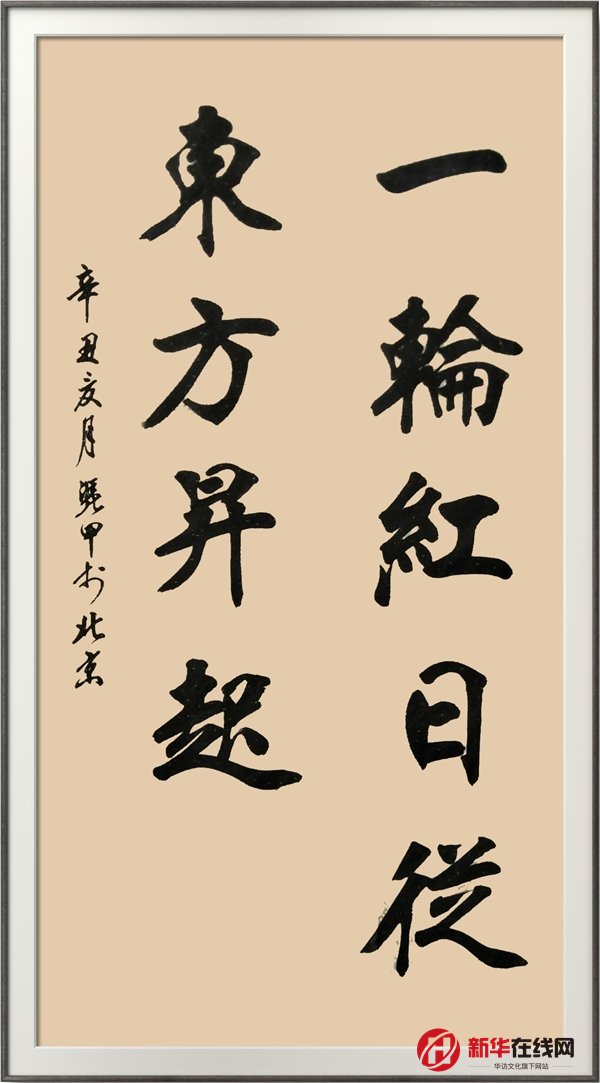 一輪紅日從
東方昇起
辛丑亥月 甲於北京
新华在线网
华访文化旗下网站